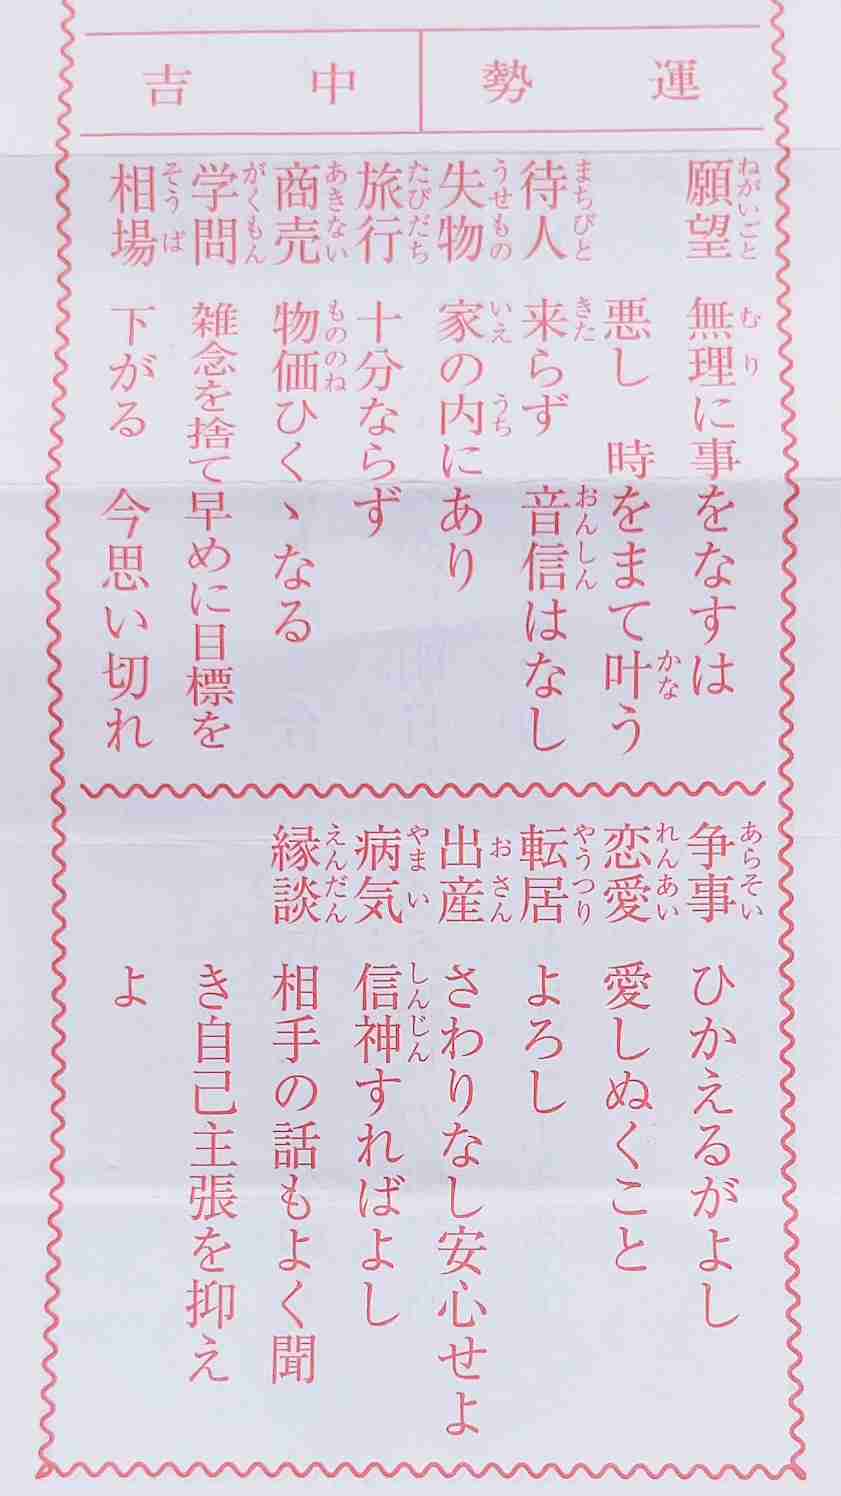 運勢 中吉
願望 無理に事をなすは
ねがいごと むり
悪し 時をまて叶う
かな
待人 来らず 音信はなし
まちびと きた おんしん
失物 家の内にあり
うせもの いえ うち
旅行 十分ならず
たびだち
商売 物価ひくゝなる
あきない もののね
学問 雑念を捨て早めに目標を
がくもん
相場 下がる 今思い切れ
そうば
争事 ひかえるがよし
あらそい
恋愛 愛しぬくこと
れんあい
転居 よろし
やうつり
出産 さわりなし安心せよ
おさん
病気 信神すればよし
やまい しんじん
縁談 相手の話もよく聞
えんだん
き自己主張を抑え
よ